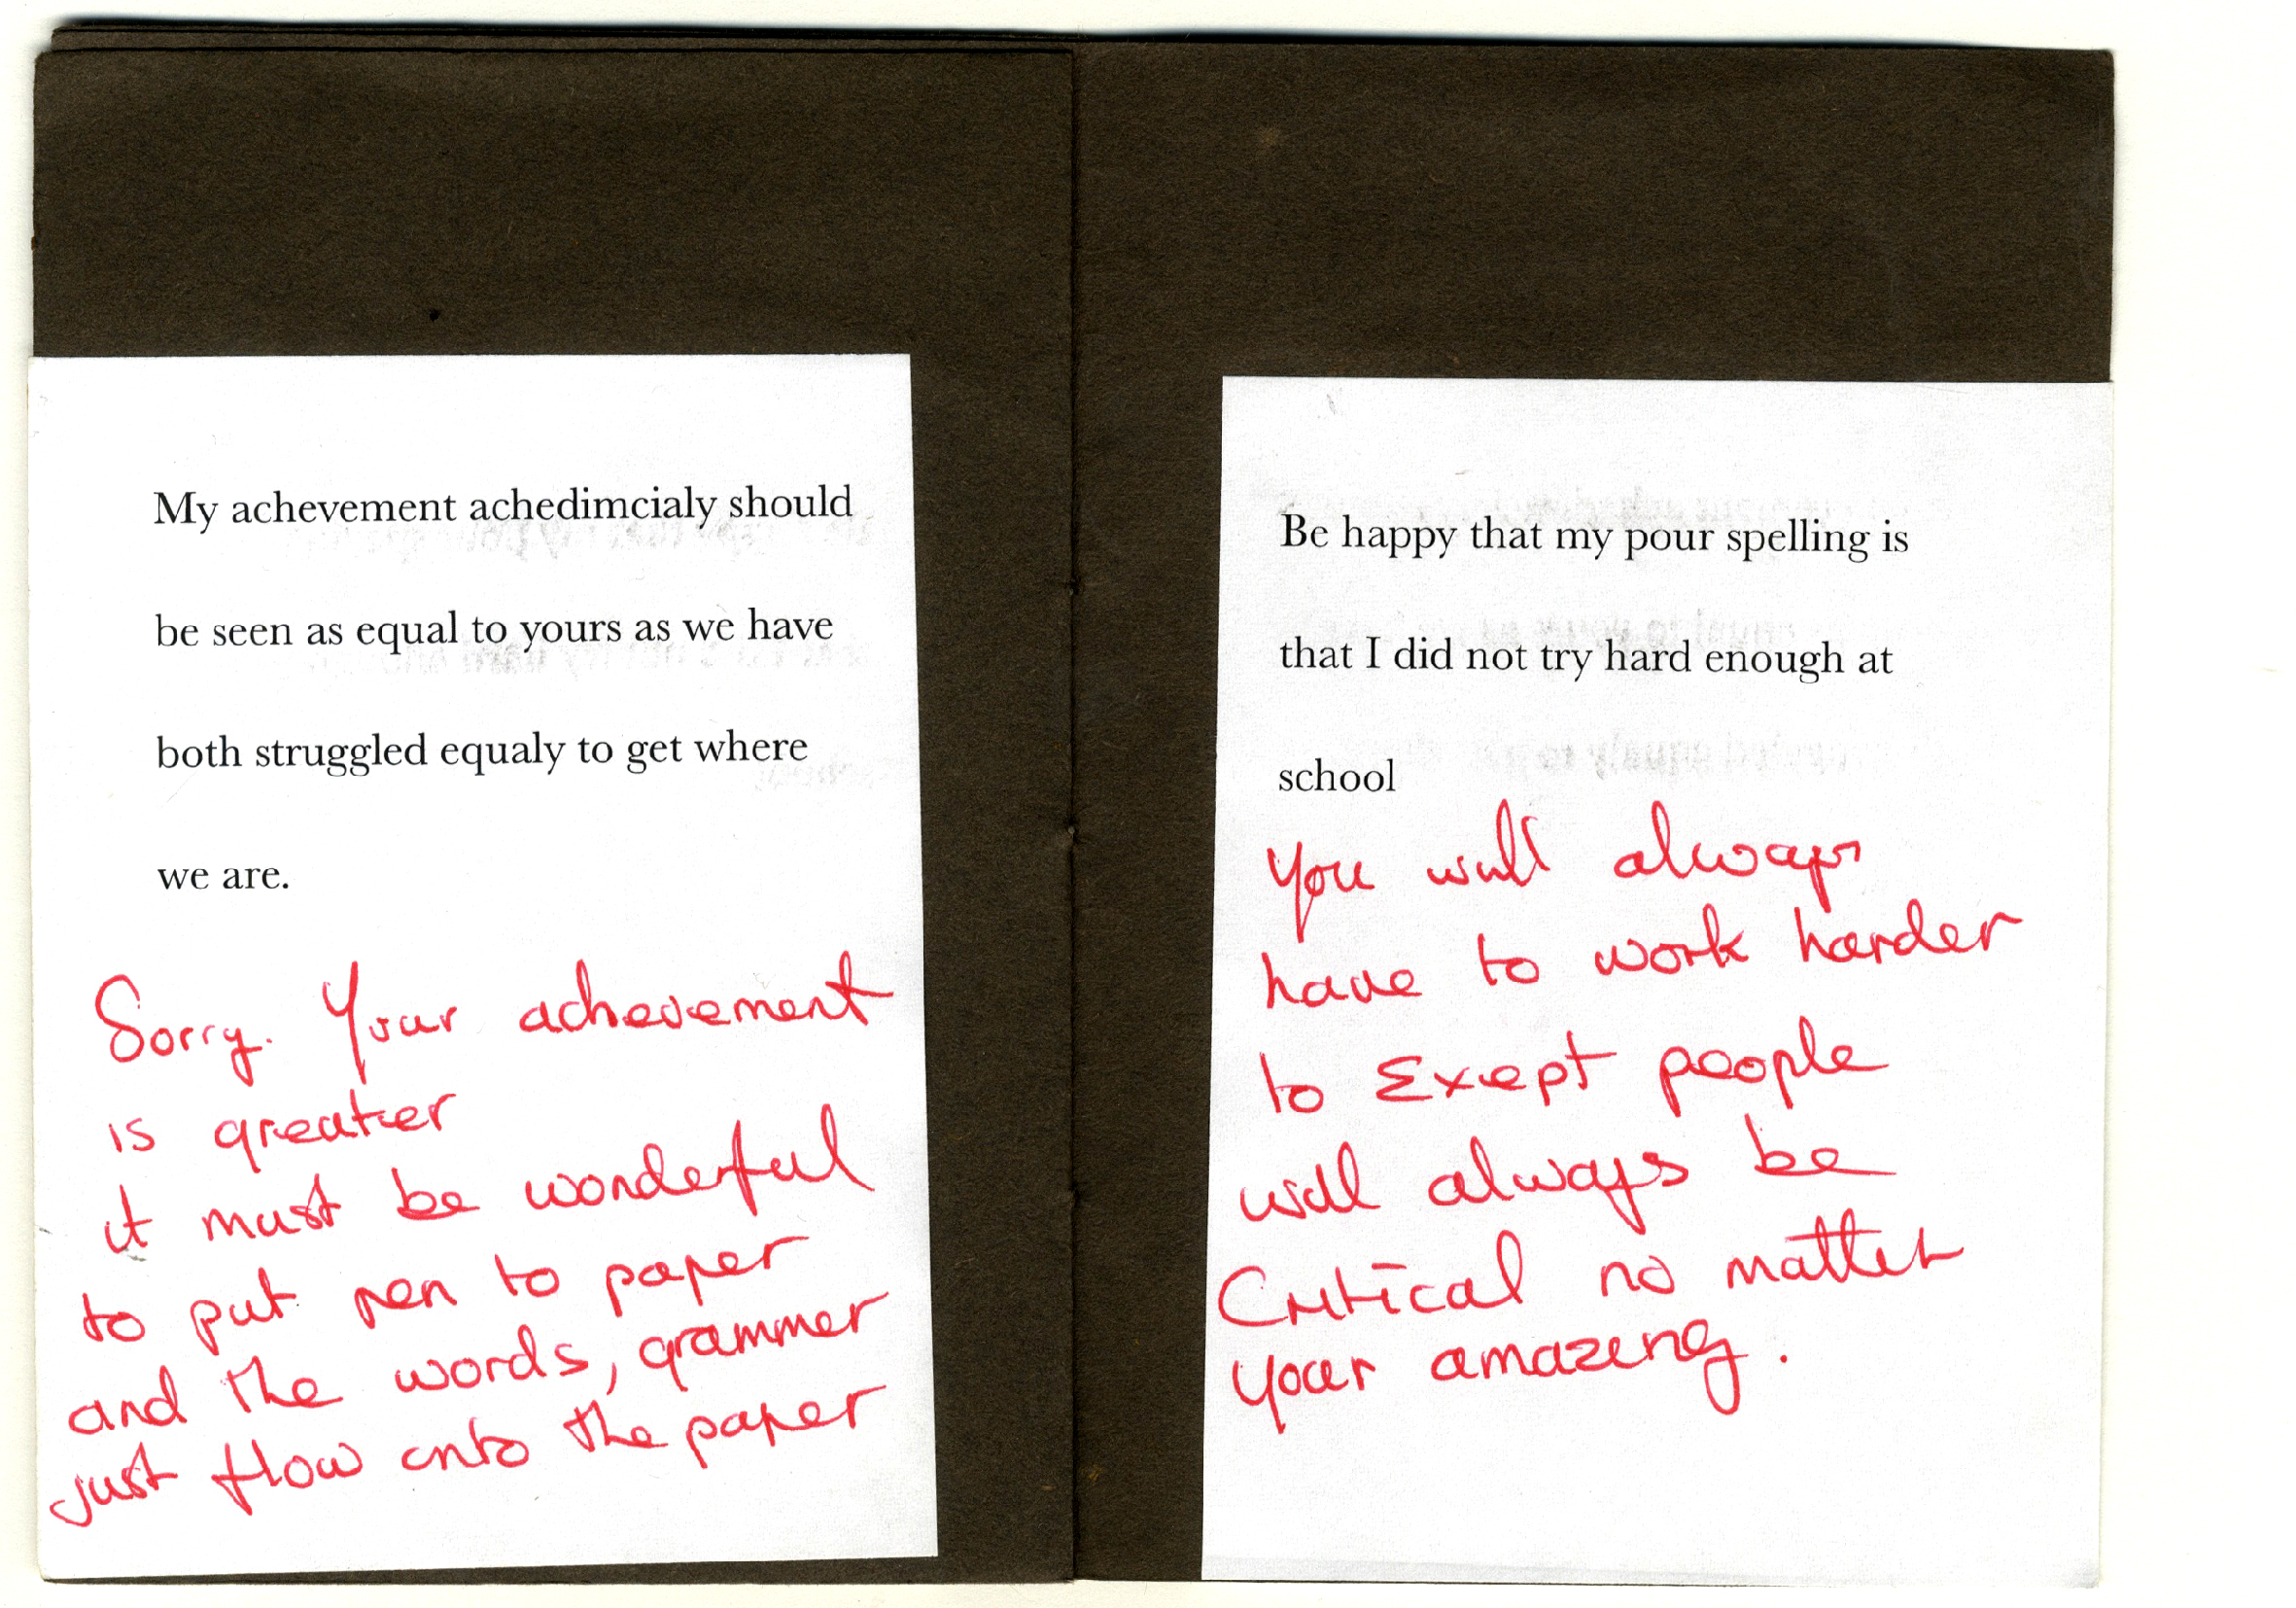 My achevement achedimcialy should
be seen as equal to yours as we have
both struggled equaly to get where
we are.
Sorry. Your achevement
is greater
it must be wonderful
to put pen to paper
and the words, grammer
just flow onto the paper
Be happy that my pour spelling is
that I did not try hard enough at
school
You will always
have to work harder
to Exept people
will always be
Critical no matter
your amazing.